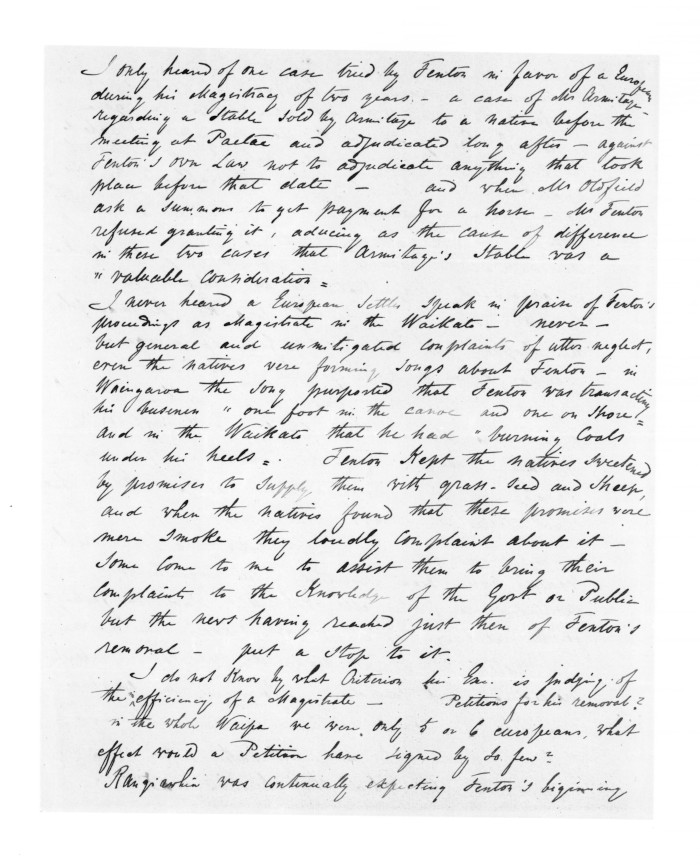 I only heard of one case tried by Fenton in favor of a European
during his Magistracy of two years. - a case of Mr Armitage
regarding a Stable sold by Armitage to a native before the
meeting at Paetae and adjudicated long after - against
Fenton's own Law not to adjudicate anything that took
place before that date - and when Mr Oldfield
ask a summons to get payment for a horse - Mr Fenton
refused granting it, aducing as the cause of difference
in these two cases that Armitage's Stable was a
"valuable consideration =
I never heared a European Settler speak in praise of Fenton's
proceedings as Magistrate in the Waikato - never -
but general and unmitigated complaints of utter neglect,
even the natives were forming songs about Fenton - in
Waingaroa the song purposted that Fenton was transacting
his business "one foot in the canoe and one on Shore! =
and in the Waikato that he had "burning Coals
under his heels = . Fenton Kept the natives sweetened
by promises to supply them with grass-seed and Sheep,
and when the natives found that these promises were
mere smoke they loudly complaint about it -
Some come to me to assist them to bring their
complaints to the Knowledge of the Govt or Public
but the news having reached just then of Fenton's
removal - put a stop to it.
I do not Know by what Criterion his Exc. is judging of
the efficiency of a Magistrate - Petitions for his removal?
in the whole Waipa we were only 5 or 6 europeans, what
effect would a Petition have signed by so few?
Rangiawhia was continually expecting Fenton's biginning